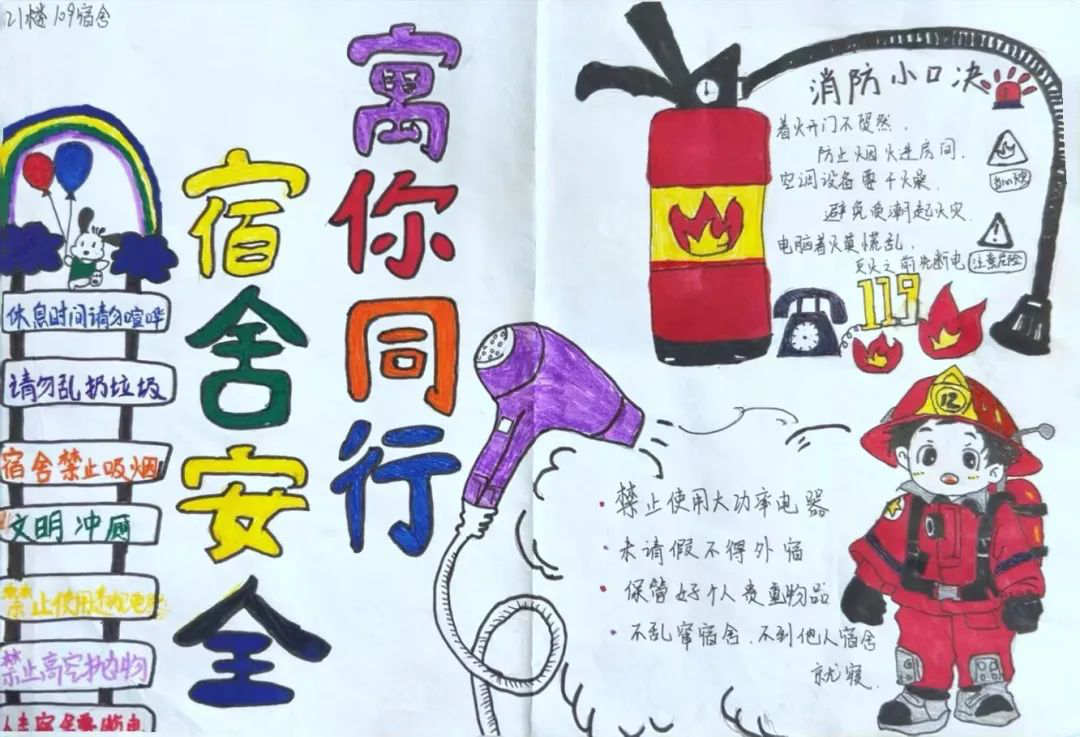 21楼109宿舍
寓你同行
宿舍安全
休息时间请勿喧哗
请勿乱扔垃圾
宿舍禁止吸烟
文明冲厕
禁止使用
禁止高空抛物
人走宿舍要断电
消防小口决
着火开门不贸然,
防止烟火进房间.
空调设备要干燥,
避免受潮起火灾.
电脑着火莫慌乱,
灭火之前先断电
注意危险
119
12
禁止使用大功率电器
未请假不得外宿
保管好个人贵重物品
不乱窜宿舍、不到他人宿舍
就寝.